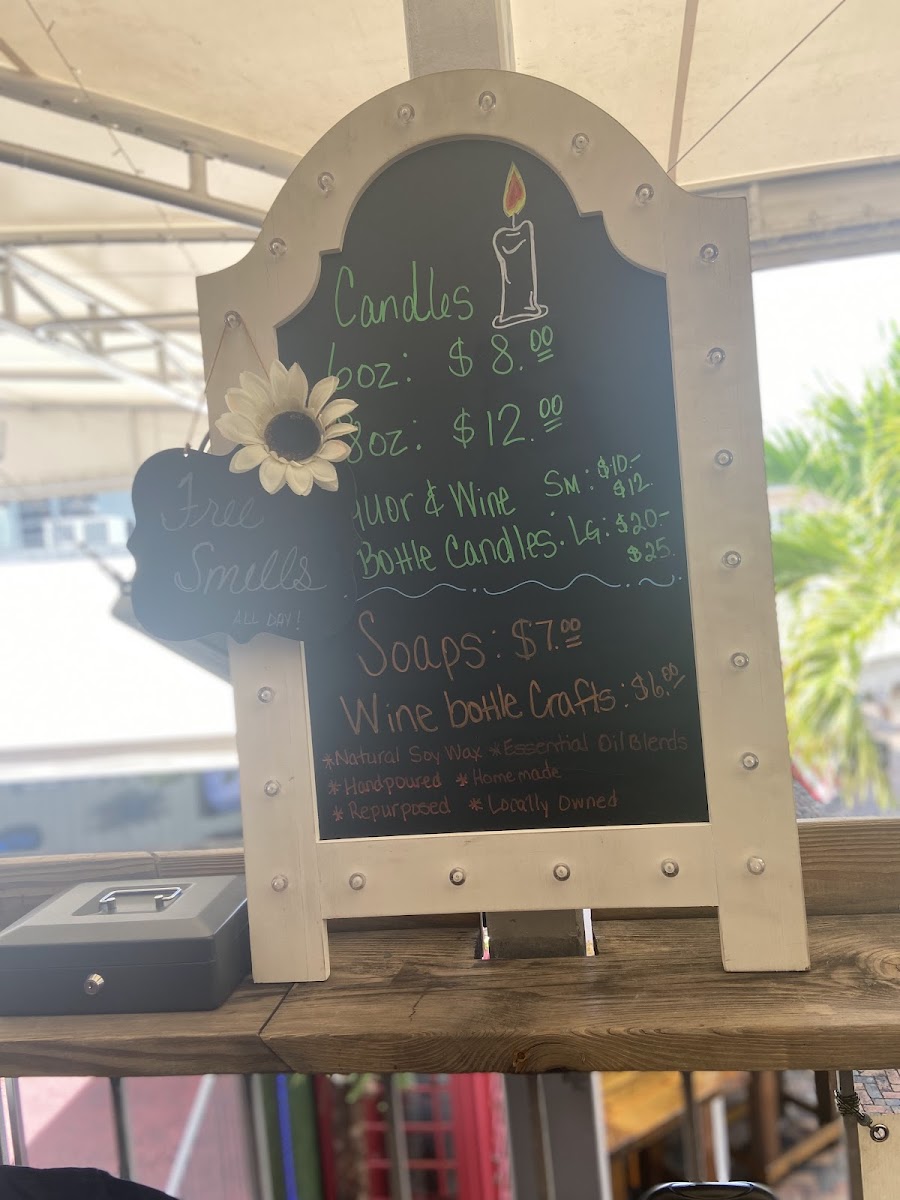 Candles
6oz: $8.00
8oz: $12.00
quor & Wine Sm: $10.-
$12.
Bottle Candles. LG: $20.-
$25.
Free
Smells
ALL DAY!
Soaps: $7.00
Wine bottle Crafts: $6.00
*Natural Soy Wax *Essential Oil Blends
*Handpoured *Homemade
*Repurposed *Locally Owned